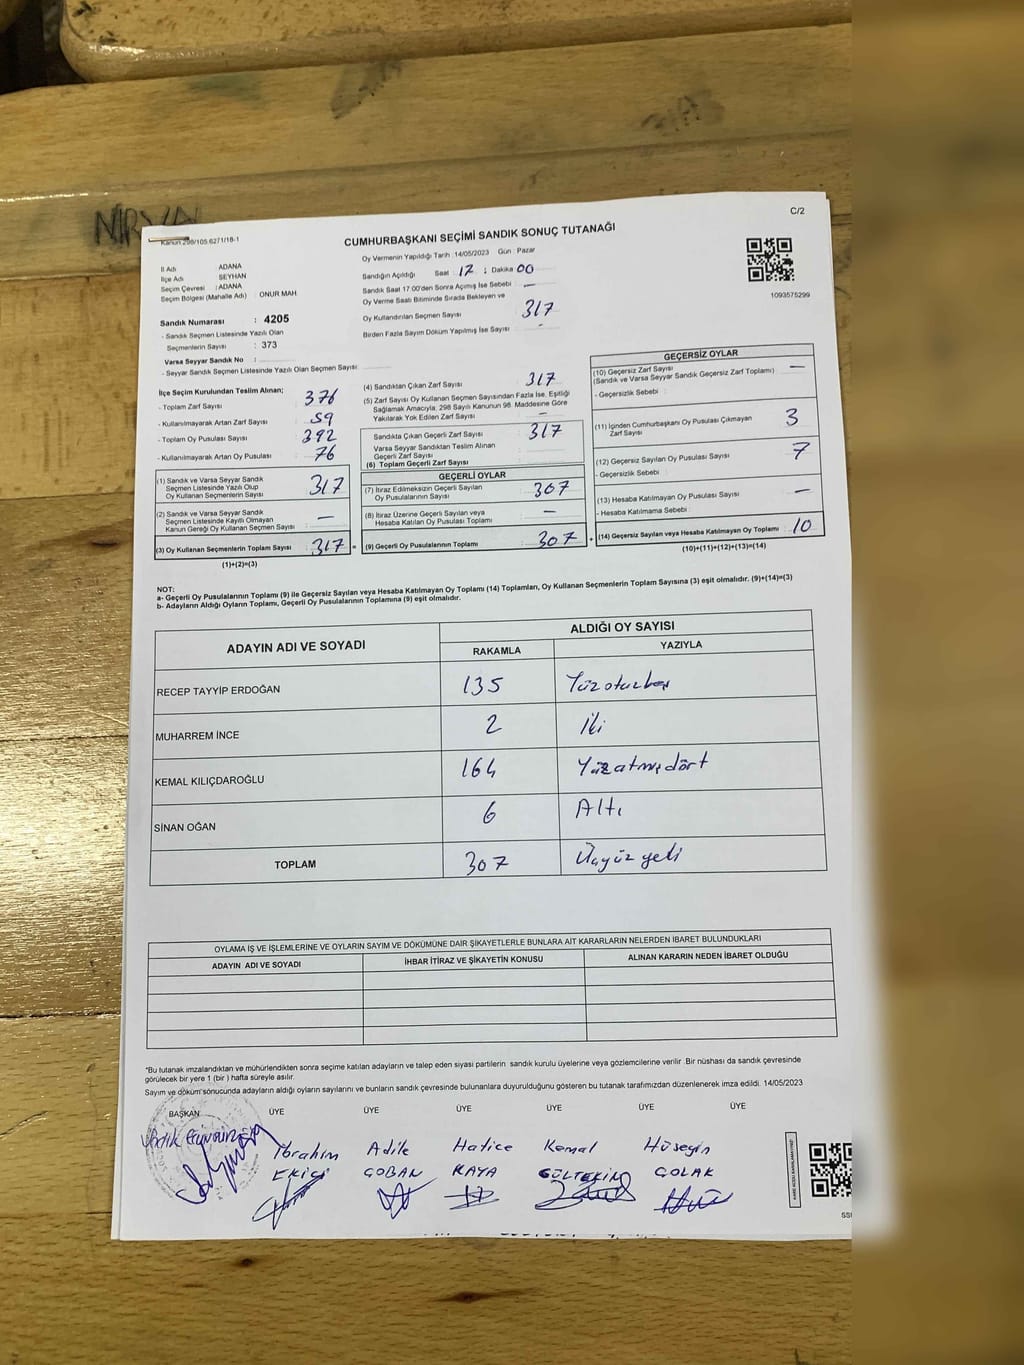 NİRVA
C/2
Kanun 298/105 6271/18-1
CUMHURBAŞKANI SEÇİMİ SANDIK SONUÇ TUTANAĞI
Oy Vermenin Yapıldığı Tarih :14/05/2023 Gün : Pazar
İl Adı ADANA
İlçe Adı SEYHAN
Seçim Çevresi : ADANA
Seçim Bölgesi (Mahalle Adı) : ONUR MAH
Sandığın Açıldığı Saat : 17 : Dakika 00
Sandık Saat 17:00'den Sonra Açılmış İse Sebebi : —
Oy Verme Saati Bitiminde Sırada Bekleyen ve
Oy Kullandırılan Seçmen Sayısı : 317
Birden Fazla Sayım Döküm Yapılmış İse Sayısı : -
1093575299
Sandık Numarası : 4205
- Sandık Seçmen Listesinde Yazılı Olan
Seçmenlerin Sayısı : 373
Varsa Seyyar Sandık No :
- Seyyar Sandık Seçmen Listesinde Yazılı Olan Seçmen Sayısı :
İlçe Seçim Kurulundan Teslim Alınan;
- Toplam Zarf Sayısı : 376
- Kullanılmayarak Artan Zarf Sayısı : 59
- Toplam Oy Pusulası Sayısı : 392
- Kullanılmayarak Artan Oy Pusulası : 76
(1) Sandık ve Varsa Seyyar Sandık
Seçmen Listesinde Yazılı Olup
Oy Kullanan Seçmenlerin Sayısı : 317
(2) Sandık ve Varsa Seyyar Sandık
Seçmen Listesinde Kayıtlı Olmayan
Kanun Gereği Oy Kullanan Seçmen Sayısı : —
(3) Oy Kullanan Seçmenlerin Toplam Sayısı : 317 =
(1)+(2)=(3)
(4) Sandıktan Çıkan Zarf Sayısı : 317
(5) Zarf Sayısı Oy Kullanan Seçmen Sayısından Fazla İse, Eşitliği
Sağlamak Amacıyla, 298 Sayılı Kanunun 98. Maddesine Göre
Yakılarak Yok Edilen Zarf Sayısı : —
Sandıkta Çıkan Geçerli Zarf Sayısı : 317
Varsa Seyyar Sandıktan Teslim Alınan
Geçerli Zarf Sayısı :
(6) Toplam Geçerli Zarf Sayısı :
GEÇERLİ OYLAR
(7) İtiraz Edilmeksizin Geçerli Sayılan
Oy Pusulalarının Sayısı : 307
(8) İtiraz Üzerine Geçerli Sayılan veya
Hesaba Katılan Oy Pusulası Toplamı : —
(9) Geçerli Oy Pusulalarının Toplamı : 307 +
GEÇERSİZ OYLAR
(10) Geçersiz Zarf Sayısı : —
(Sandık ve Varsa Seyyar Sandık Geçersiz Zarf Toplamı)
- Geçersizlik Sebebi :
(11) İçinden Cumhurbaşkanı Oy Pusulası Çıkmayan
Zarf Sayısı : 3
(12) Geçersiz Sayılan Oy Pusulası Sayısı : 7
- Geçersizlik Sebebi :
(13) Hesaba Katılmayan Oy Pusulası Sayısı : —
- Hesaba Katılmama Sebebi :
(14) Geçersiz Sayılan veya Hesaba Katılmayan Oy Toplamı : 10
(10)+(11)+(12)+(13)=(14)
NOT:
a- Geçerli Oy Pusulalarının Toplamı (9) ile Geçersiz Sayılan veya Hesaba Katılmayan Oy Toplamı (14) Toplamları, Oy Kullanan Seçmenlerin Toplam Sayısına (3) eşit olmalıdır. (9)+(14)=(3)
b- Adayların Aldığı Oyların Toplamı, Geçerli Oy Pusulalarının Toplamına (9) eşit olmalıdır.
ADAYIN ADI VE SOYADI ALDIĞI OY SAYISI
RAKAMLA YAZIYLA
RECEP TAYYİP ERDOĞAN 135 Yüzotuzbeş
MUHARREM İNCE 2 İki
KEMAL KILIÇDAROĞLU 164 Yüzatmışdört
SİNAN OĞAN 6 Altı
TOPLAM 307 Üçyüzyedi
OYLAMA İŞ VE İŞLEMLERİNE VE OYLARIN SAYIM VE DÖKÜMÜNE DAİR ŞİKAYETLERLE BUNLARA AİT KARARLARIN NELERDEN İBARET BULUNDUKLARI
ADAYIN ADI VE SOYADI İHBAR İTİRAZ VE ŞİKAYETİN KONUSU ALINAN KARARIN NEDEN İBARET OLDUĞU
*Bu tutanak imzalandıktan ve mühürlendikten sonra seçime katılan adayların ve talep eden siyasi partilerin sandık kurulu üyelerine veya gözlemcilerine verilir .Bir nüshası da sandık çevresinde
görülecek bir yere 1 (bir ) hafta süreyle asılır.
Sayım ve döküm sonucunda adayların aldığı oyların sayılarını ve bunların sandık çevresinde bulunanlara duyurulduğunu gösteren bu tutanak tarafımızdan düzenlenerek imza edildi. 14/05/2023
BAŞKAN ÜYE ÜYE ÜYE ÜYE ÜYE ÜYE
İbrahim Adile Hatice Kemal Hüseyin
EKİCİ ÇOBAN KAYA GÜLTEKİN ÇOLAK